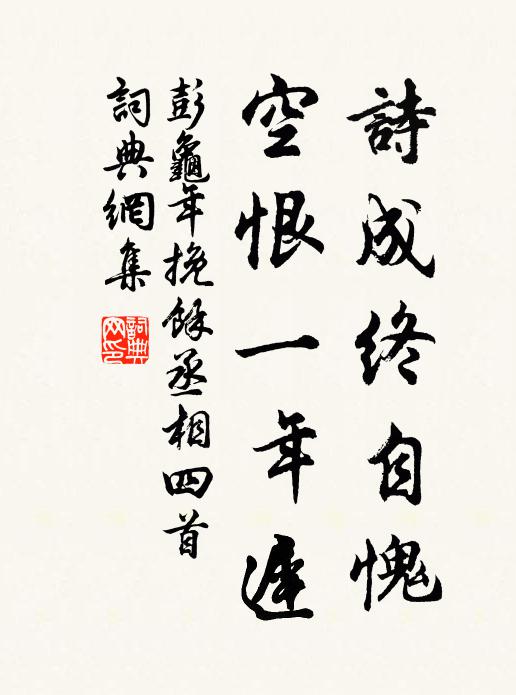 詩成終自愧
空恨一年遲
彭龜年挽餘丞相四首
詞典網集
詞典
网印